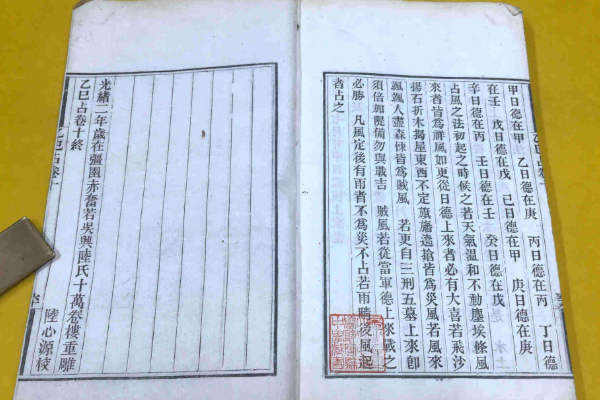 甲日德在甲 乙日德在庚 丙日德在丙 丁日德
在壬 戊日德在戊 己日德在甲 庚日德在庚
辛日德在丙 壬日德在壬 癸日德在戊
占風之法初起之時候之若天氣溫和不動塵埃條風
來者皆為祥風如更從日德上來者必有大喜若飛沙
揚石折木揭屋東西不定旗旛逩搶皆為災風若風來
颯颯人盡森悚皆為賊風 若更自三刑五墓上來即
須倍加隄備勿與戰吉 賊風若從當軍德上來戰之
必勝 凡風定後有雨者不為災不占若雨晴後風起
者占之
乙巳占卷十
光緒二年歲在彊圉赤奮若吳興陸氏十萬卷樓重雕
乙巳占卷十終
陸心源校